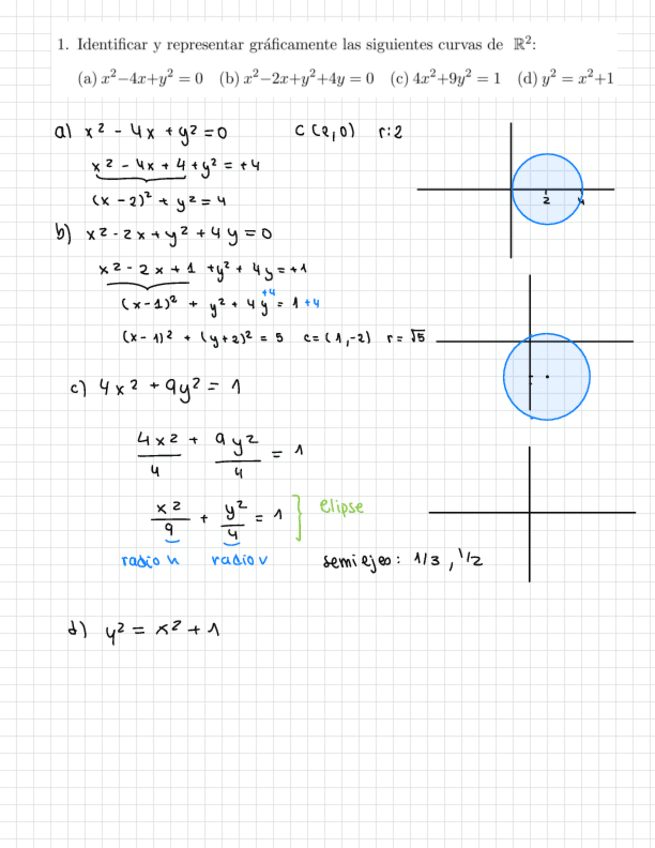 1. Identificar y representar gráficamente las siguientes curvas de ℝ²:
(a) x²−4x+y² = 0 (b) x²−2x+y²+4y = 0 (c) 4x²+9y² = 1 (d) y² = x²+1
a) x² - 4x + y² = 0 C (2,0) r:2
x² - 4x + 4 + y² = +4
(x - 2)² + y² = 4
2 4
b) x² - 2x + y² + 4y = 0
x² - 2x + 1 + y² + 4y = +1
(x-1)² + y² + 4y +4 = 1 +4
(x - 1)² + (y+2)² = 5 c = (1,-2) r = √5
c) 4x² + 9y² = 1
4x²/4 + 9y²/4 = 1
x²/9 + y²/4 = 1 } elipse
radio h radio v semiejes: 1/3, 1/2
d) y² = x² + 1